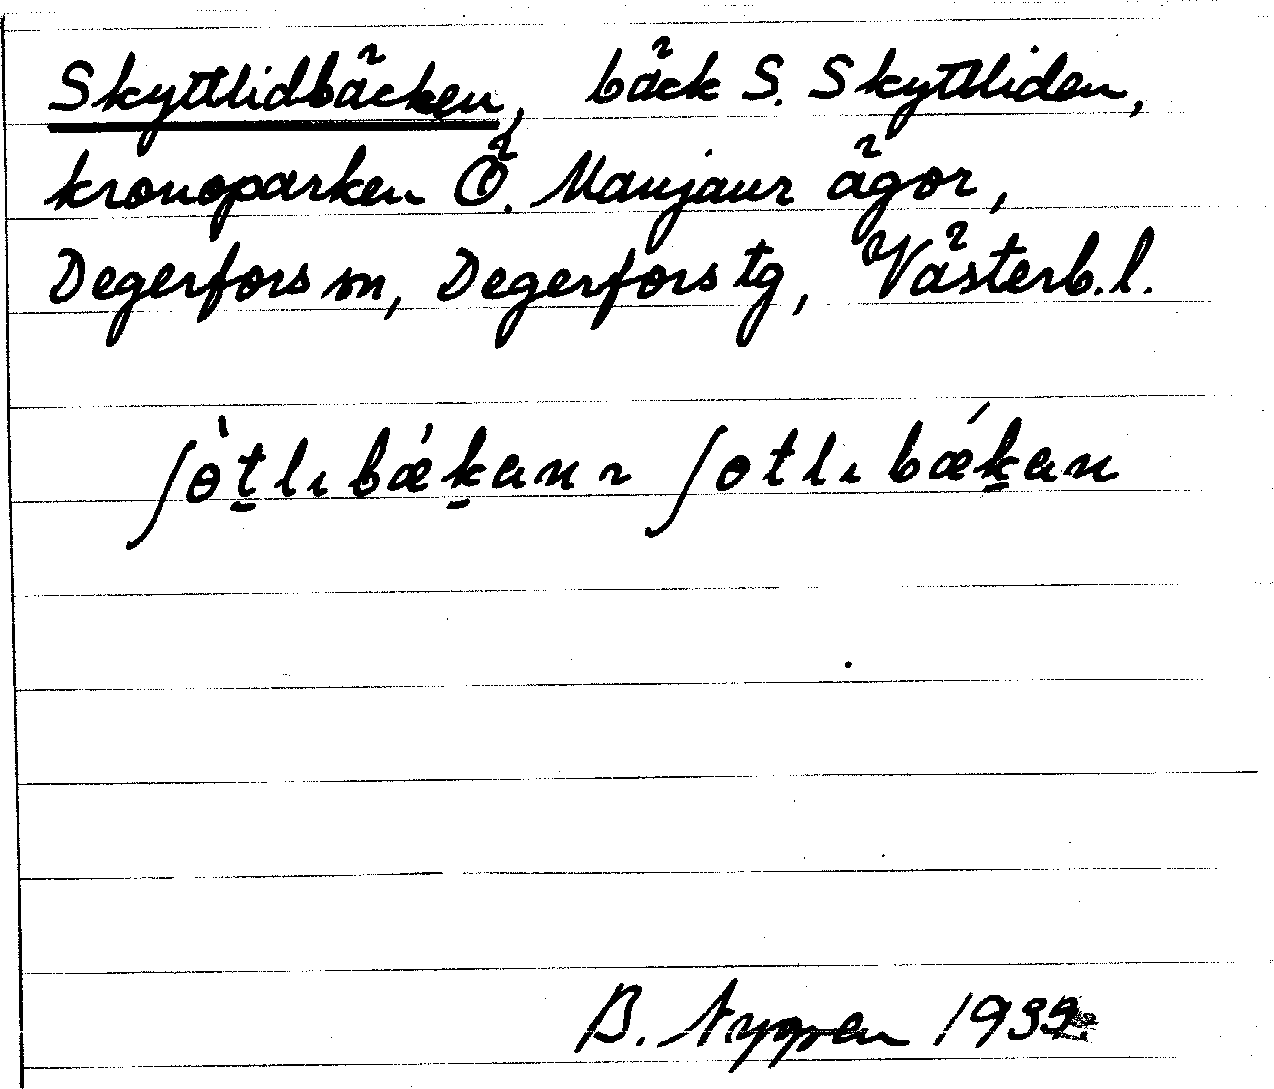 Skyttlidbäcken, bäck S. Skyttliden,
kronoparken Ö. Manjaur ägor,
Degerfors sn, Degerfors tg, Västerb.l.
ʃɵ̀t̲lɩbǽk̲an ~ ʃɵtlɩbæḱ̲an
B. Nygren 1932